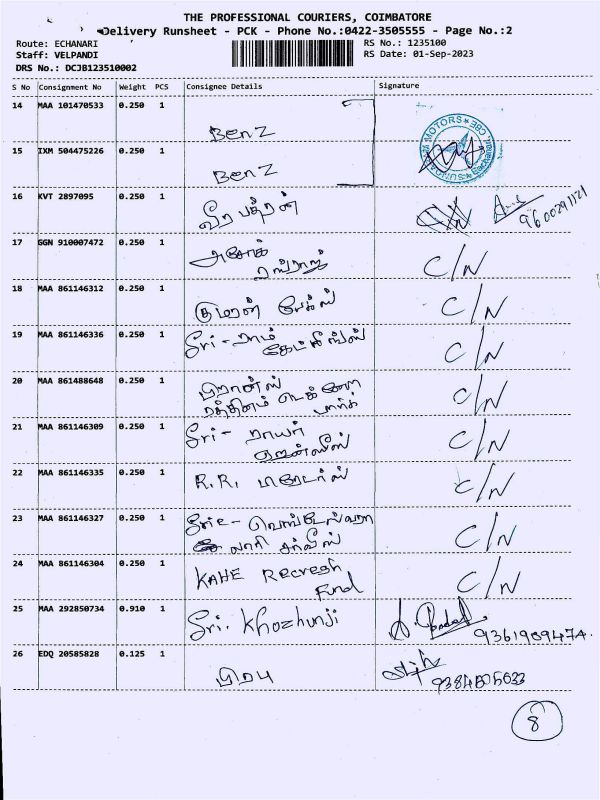 THE PROFESSIONAL COURIERS, COIMBATORE
Delivery Runsheet - PCK - Phone No.:0422-3505555 - Page No.:2
Route: ECHANARI
RS No.: 1235100
Staff: VELPANDI
RS Date: 01-Sep-2023
DRS No.: DCJB123510002
S No Consignment No Weight PCS Consignee Details Signature
14 MAA 101470533 0.250 1
BenZ
MOTORS
15 IXM 504475226 0.250 1
BenZ
16 KVT 2897095 0.250 1
வீரபத்ரன்
9600291121
17 GGN 910007472 0.250 1
அசோக்
C/N
18 MAA 861146312 0.250 1
குமரன் பேக்ஸ் C/N
19 MAA 861146336 0.250 1
Sri - ராம்
C/N
20 MAA 861488648 0.250 1
ரத்தினம் டெக்னோ
பார்க்
C/N
21 MAA 861146309 0.250 1
Sri -
C/N
22 MAA 861146335 0.250 1
R.R. C/N
23 MAA 861146327 0.250 1
லாரி சர்வீஸ்
C/N
24 MAA 861146304 0.250 1
KAHE
Fund
C/N
25 MAA 292850734 0.910 1
Sri. Khozhunji
9361989474
26 EDQ 20585828 0.125 1
பிரபு
8